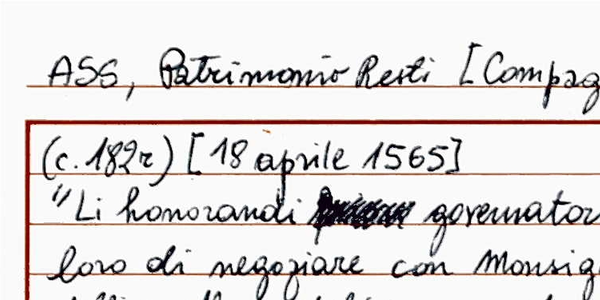 ASS, Patrimonio Resti [Compag
(c. 182r) [18 aprile 1565]
"Li honorandi governator
loro di negoziare con Monsig